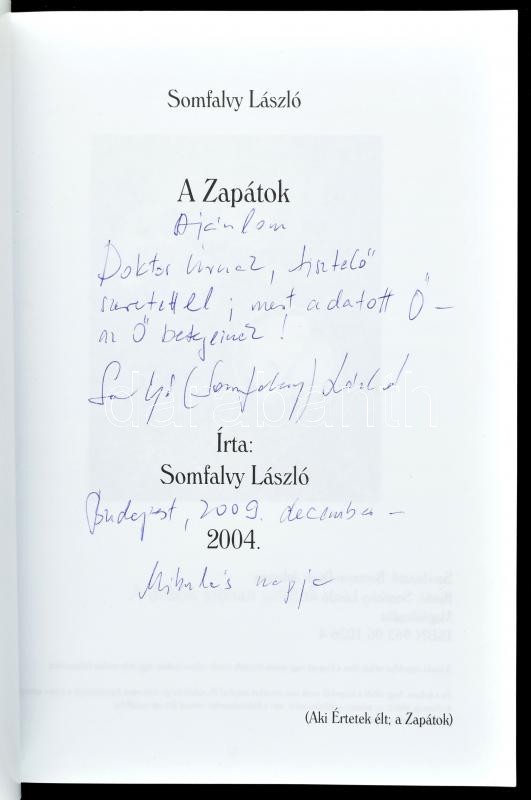 Somfalvy László
A Zapátok
Ajánlom
Doktor Úrnak, tisztelő
szeretettel; mert adatott Ő –
az Ő betegeinek!
(Somfalvy) László
Írta:
Somfalvy László
Budapest, 2009. december –
2004.
Mikulás napja
(Aki Értetek élt; a Zapátok)